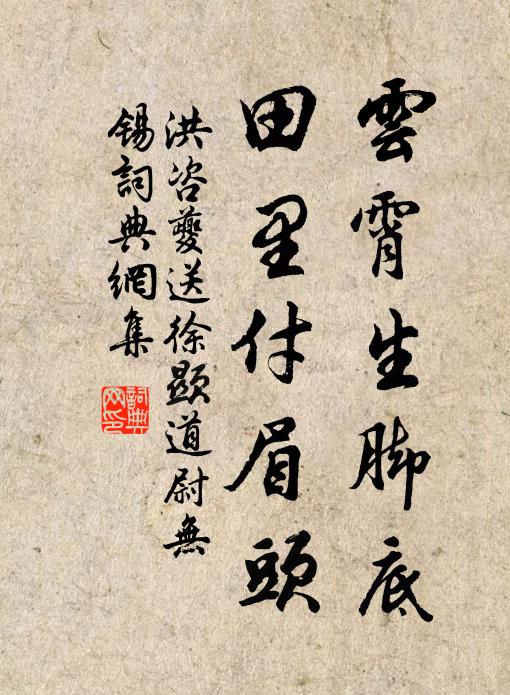 雲霄生脚底
田里付眉頭
洪咨夔送徐顯道尉無
錫詞典網集
詞典
网印